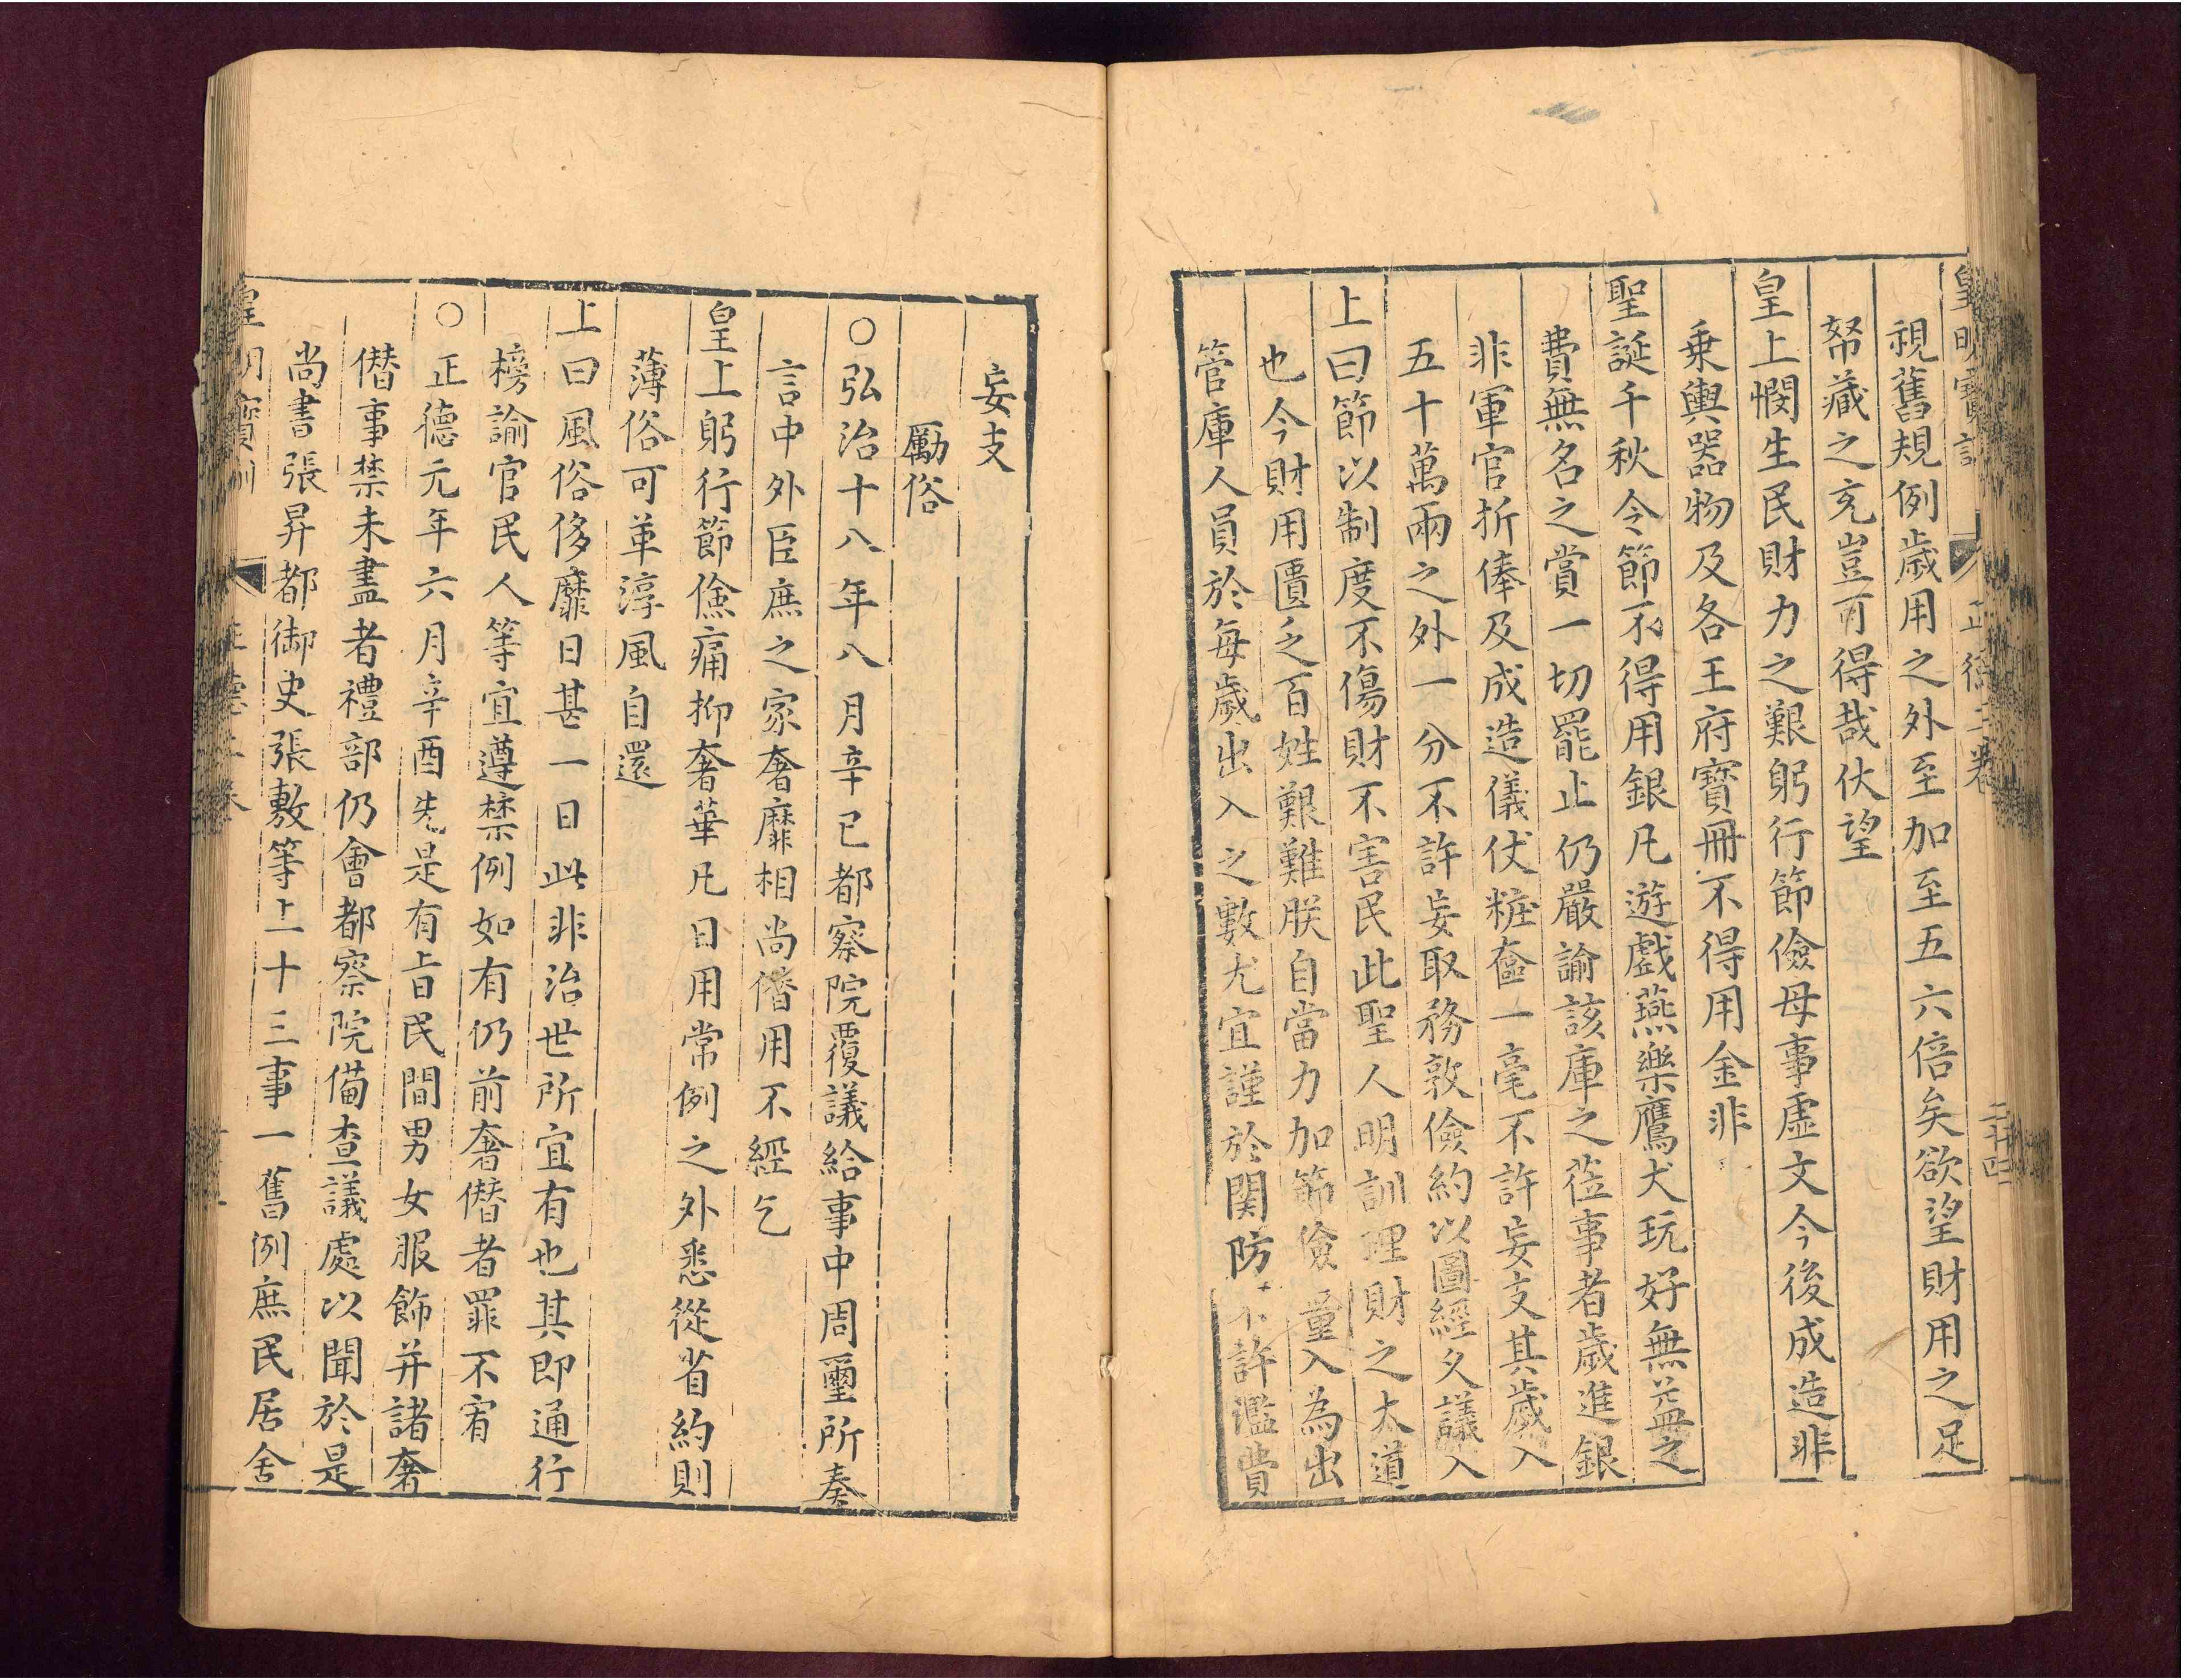 皇明寶訓 正德二卷 二十四
視舊規例歲用之外至加至五六倍矣欲望財用之足
帑藏之充豈可得哉伏望
皇上憫生民財力之艱躬行節儉毋事虛文今後成造非
乗輿器物及各王府寳冊不得用金非
聖誕千秋令節不得用銀凡遊戲燕樂鷹犬玩好無益之
費無名之賞一切罷止仍嚴諭該庫之莅事者歲進銀
非軍官折俸及成造儀仗粧奩一毫不許妄支其歲入
五十萬兩之外一分不許妄取務敦儉約以圖經久議入
上曰節以制度不傷財不害民此聖人明訓理財之大道
也今財用匱乏百姓艱難朕自當力加節儉量入為出
管庫人員於每歲出入之數尤宜謹於関防不許濫費
妄支
勵俗
○弘治十八年八月辛巳都察院覆議給事中周璽所奏
言中外臣庶之家奢靡相尚僭用不經乞
皇上躬行節儉痛抑奢華凡日用常例之外悉從省約則
薄俗可革淳風自還
上曰風俗侈靡日甚一日此非治世所宜有也其即通行
榜諭官民人等宜遵禁例如有仍前奢僭者罪不宥
○正德元年六月辛酉先是有旨民間男女服飾并諸奢
僭事禁未盡者禮部仍會都察院備查議處以聞於是
尚書張昇都御史張敷等上十三事一舊例庶民居舍
皇明寶訓 正德二卷